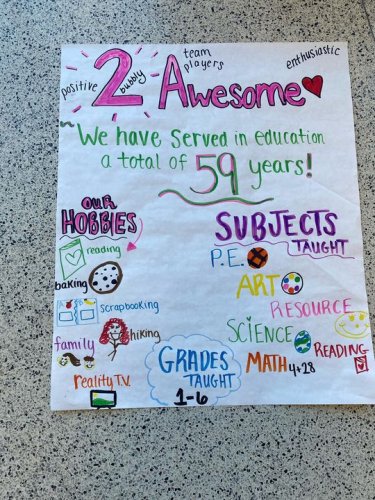 positive
bubbly
team
players
enthusiastic
2 Awesome
We have served in education
a total of 59 years!
our
HOBBIES
reading
baking
scrapbooking
hiking
family
reality T.V.
SUBJECTS
TAUGHT
P.E.
ART
RESOURCE
SCIENCE
READING
MATH 4+28
GRADES
TAUGHT
1-6